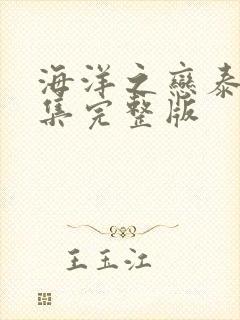 海洋之戀泰
集完整版
王玉江